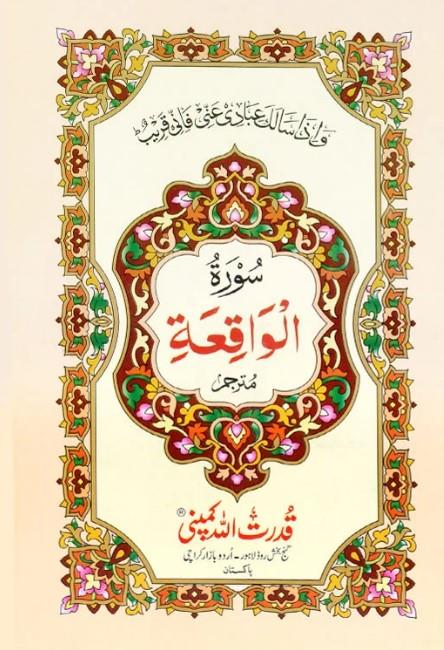 وَاِذَا سَاَلَكَ عِبَادِیْ عَنِّیْ فَاِنِّیْ قَرِیْبٌ ؕ
سُوْرَةُ
الْوَاقِعَةِ
مُترجم
قدرت اللہ کمپنی ®
گنج بخش روڈ لاہور - اُردو بازار کراچی
پاکستان